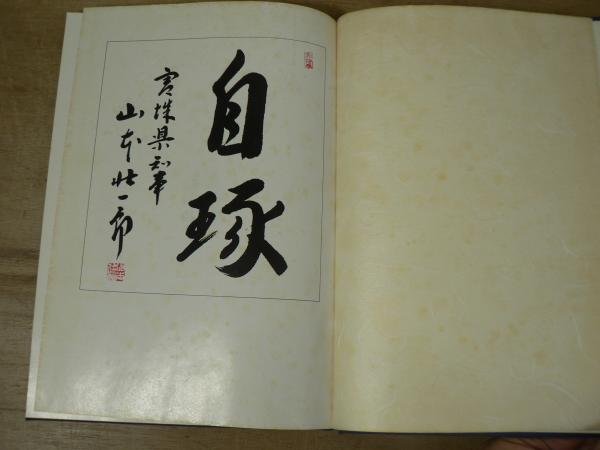 自琢
宮城県知事
山本壮一郎